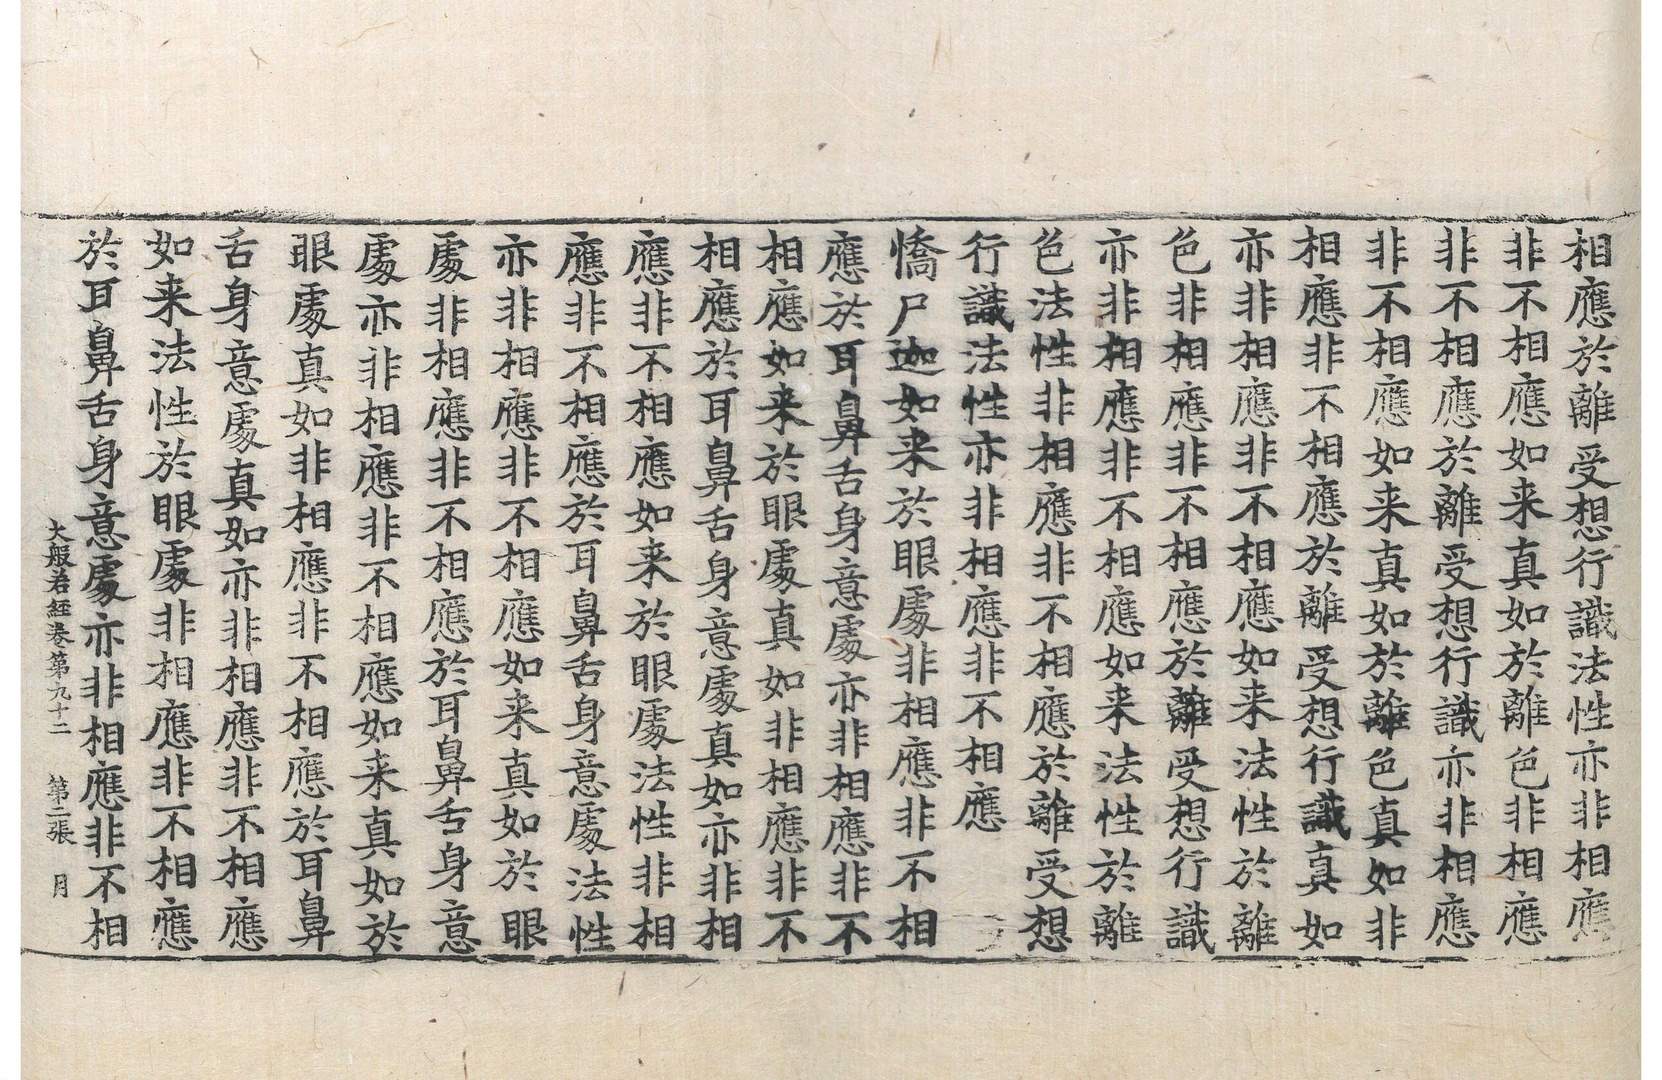 相應於離受想行識法性亦非相應
非不相應如来真如於離色非相應
非不相應於離受想行識亦非相應
非不相應如来真如於離色真如非
相應非不相應於離受想行識真如
亦非相應非不相應如来法性於離
色非相應非不相應於離受想行識
亦非相應非不相應如来法性於離
色法性非相應非不相應於離受想
行識法性亦非相應非不相應
憍尸迦如来於眼處非相應非不相
應於耳鼻舌身意處亦非相應非不
相應如来於眼處真如非相應非不
相應於耳鼻舌身意處真如亦非相
應非不相應如来於眼處法性非相
應非不相應於耳鼻舌身意處法性
亦非相應非不相應如来真如於眼
處非相應非不相應於耳鼻舌身意
處亦非相應非不相應如来真如於
眼處真如非相應非不相應於耳鼻
舌身意處真如亦非相應非不相應
如来法性於眼處非相應非不相應
於耳鼻舌身意處亦非相應非不相
大般若經卷第九十二 第二張 月